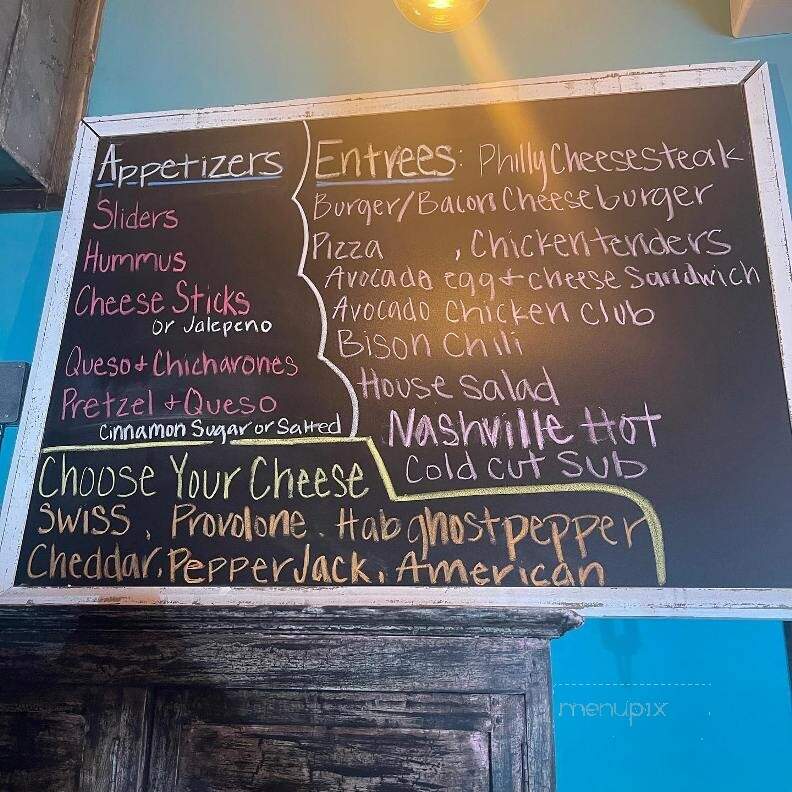 Appetizers
Sliders
Hummus
Cheese Sticks
or Jalepeno
Queso + Chicharones
Pretzel + Queso
Cinnamon Sugar or Salted
Entrees: Philly Cheesesteak
Burger/Bacon Cheeseburger
Pizza , Chicken tenders
Avocado egg + cheese Sandwich
Avocado Chicken Club
Bison Chili
House salad
Nashville Hot
Cold cut Sub
Choose Your Cheese
Swiss, Provolone. Hab ghost pepper
Cheddar, Pepper Jack, American
menupix